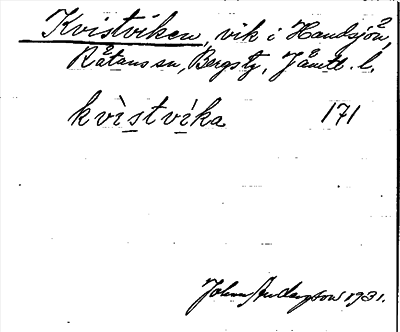 Kvistviken, vik i Handsjön,
Råtans sn, Bergs tg, Jämtl. l.
kvìstvíka 171
Johan Anderzson 1931.